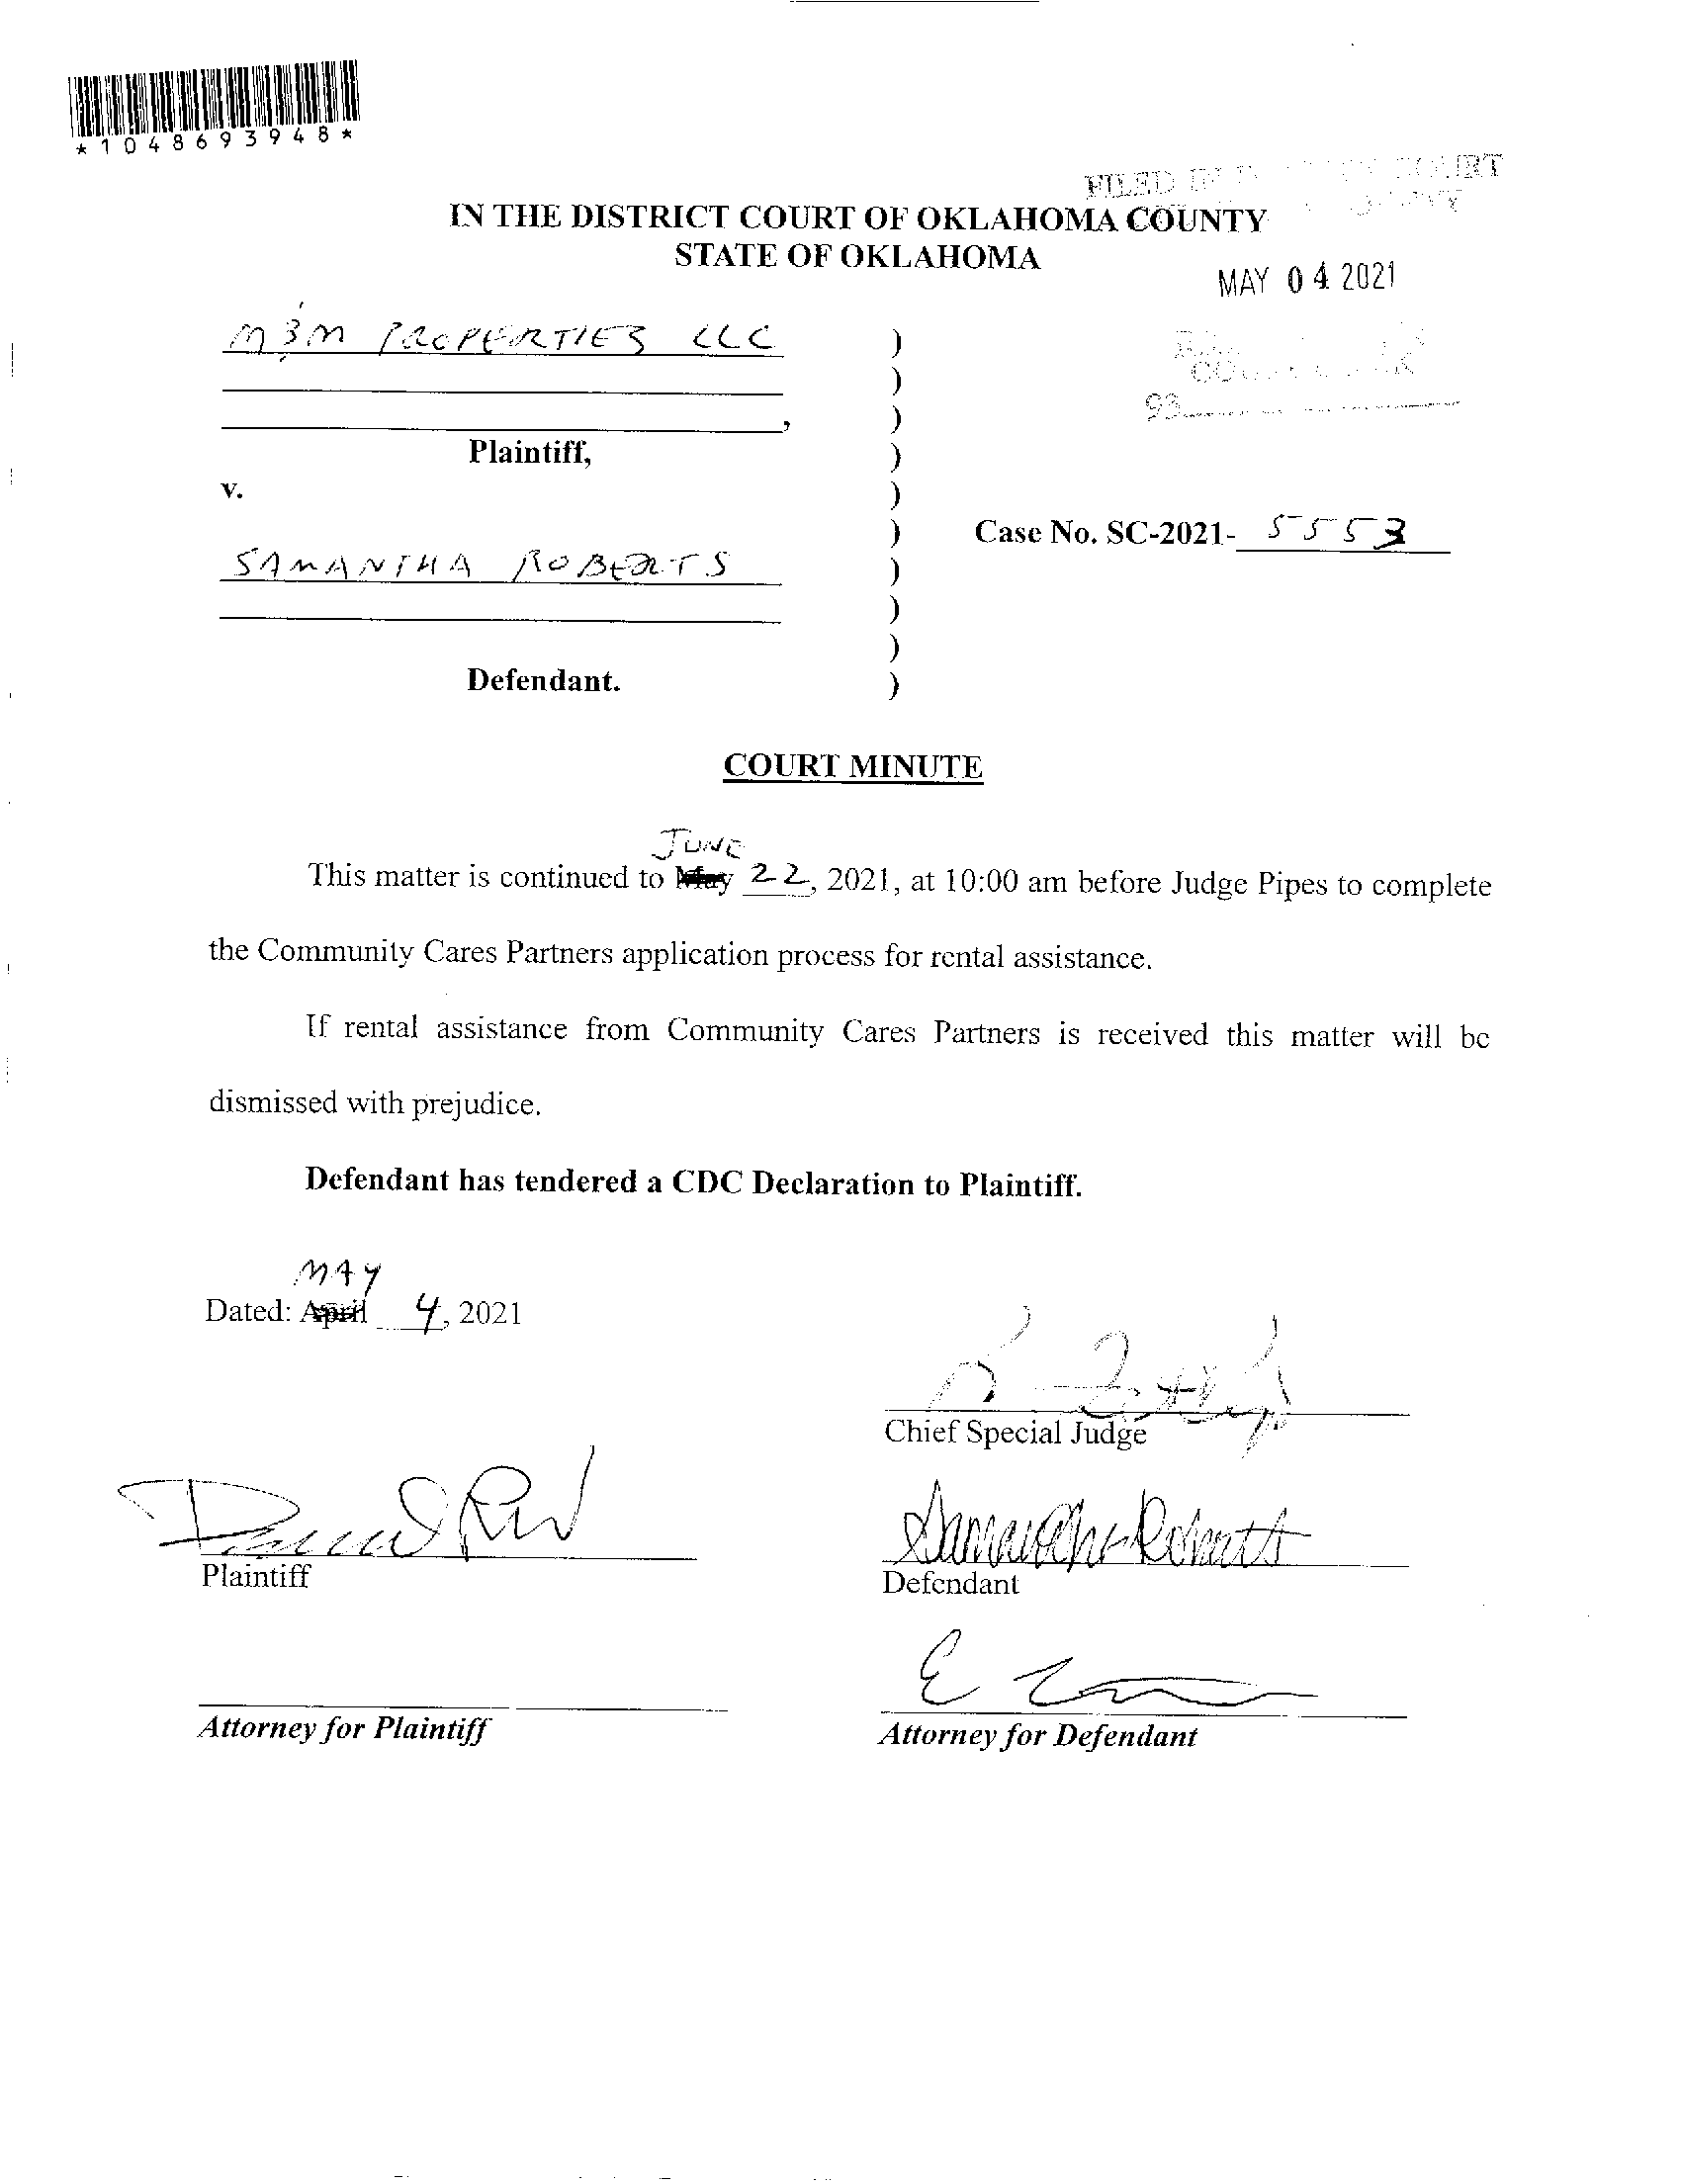 *1048693948*
FILED
IN THE DISTRICT COURT OF OKLAHOMA COUNTY
STATE OF OKLAHOMA
MAY 04 2021
M&M PROPERTIES LLC )
)
, )
Plaintiff, )
v. )
) Case No. SC-2021- 5553
SAMANTHA ROBERTS )
)
)
Defendant. )
93
COURT MINUTE
JUNE
This matter is continued to May 22, 2021, at 10:00 am before Judge Pipes to complete
the Community Cares Partners application process for rental assistance.
If rental assistance from Community Cares Partners is received this matter will be
dismissed with prejudice.
Defendant has tendered a CDC Declaration to Plaintiff.
MAY
Dated: April 4, 2021
Chief Special Judge
Samantha Roberts
Plaintiff
Defendant
Attorney for Plaintiff
Attorney for Defendant